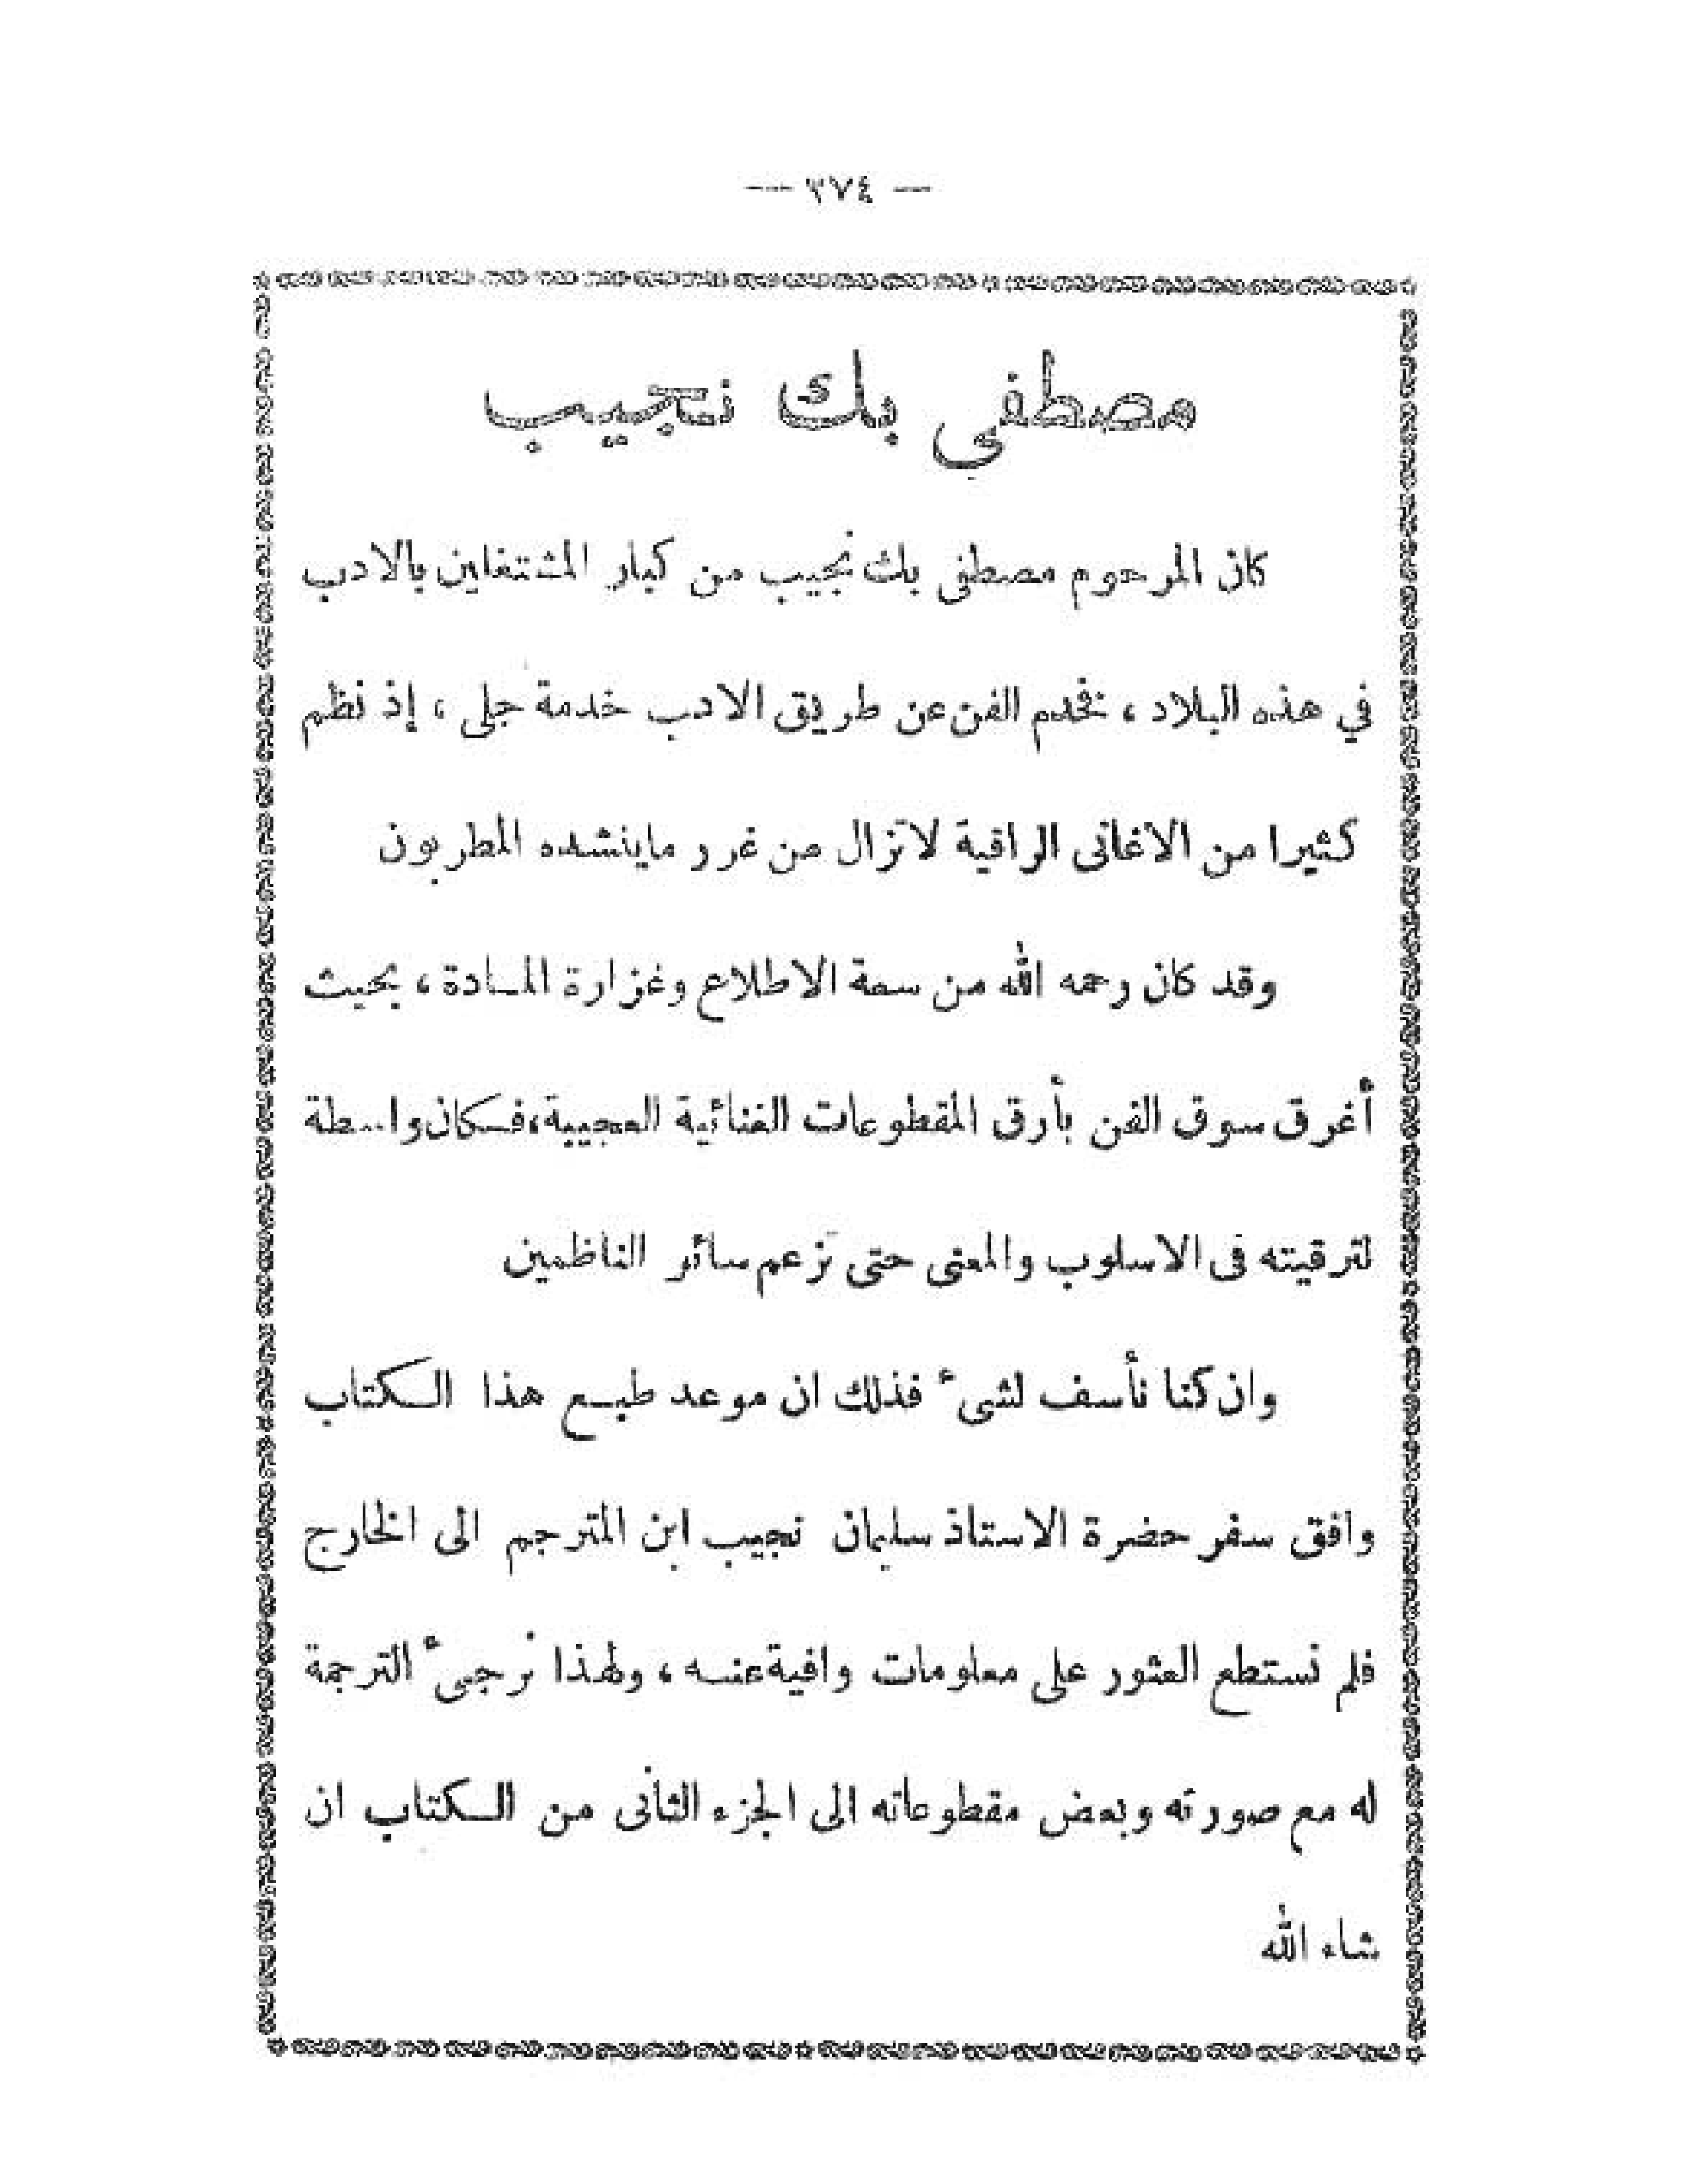 — ٢٧٤ —
مصطفى بك نجيب
كان المرحوم مصطفى بك نجيب من كبار المشتغلين بالادب
في هذه البلاد ، فخدم الفن عن طريق الادب خدمة جلى ، إذ نظم
كثيرا من الاغانى الراقية لاتزال من غرر ماينشده المطربون
وقد كان رحمه الله من سعة الاطلاع وغزارة المادة ، بحيث
أغرق سوق الفن بأرق المقطوعات الغنائية العجيبة، فكان واسطة
لترقيته فى الاسلوب والمعنى حتى تزعم سائر الناظمين
وان كنا نأسف لشىء فذلك ان موعد طبع هذا الكتاب
وافق سفر حضرة الاستاذ سليمان نجيب ابن المترجم الى الخارج
فلم نستطع العثور على معلومات وافية عنه ، ولهذا نرجىء الترجمة
له مع صورته وبعض مقطوعاته الى الجزء الثانى من الكتاب ان
شاء الله